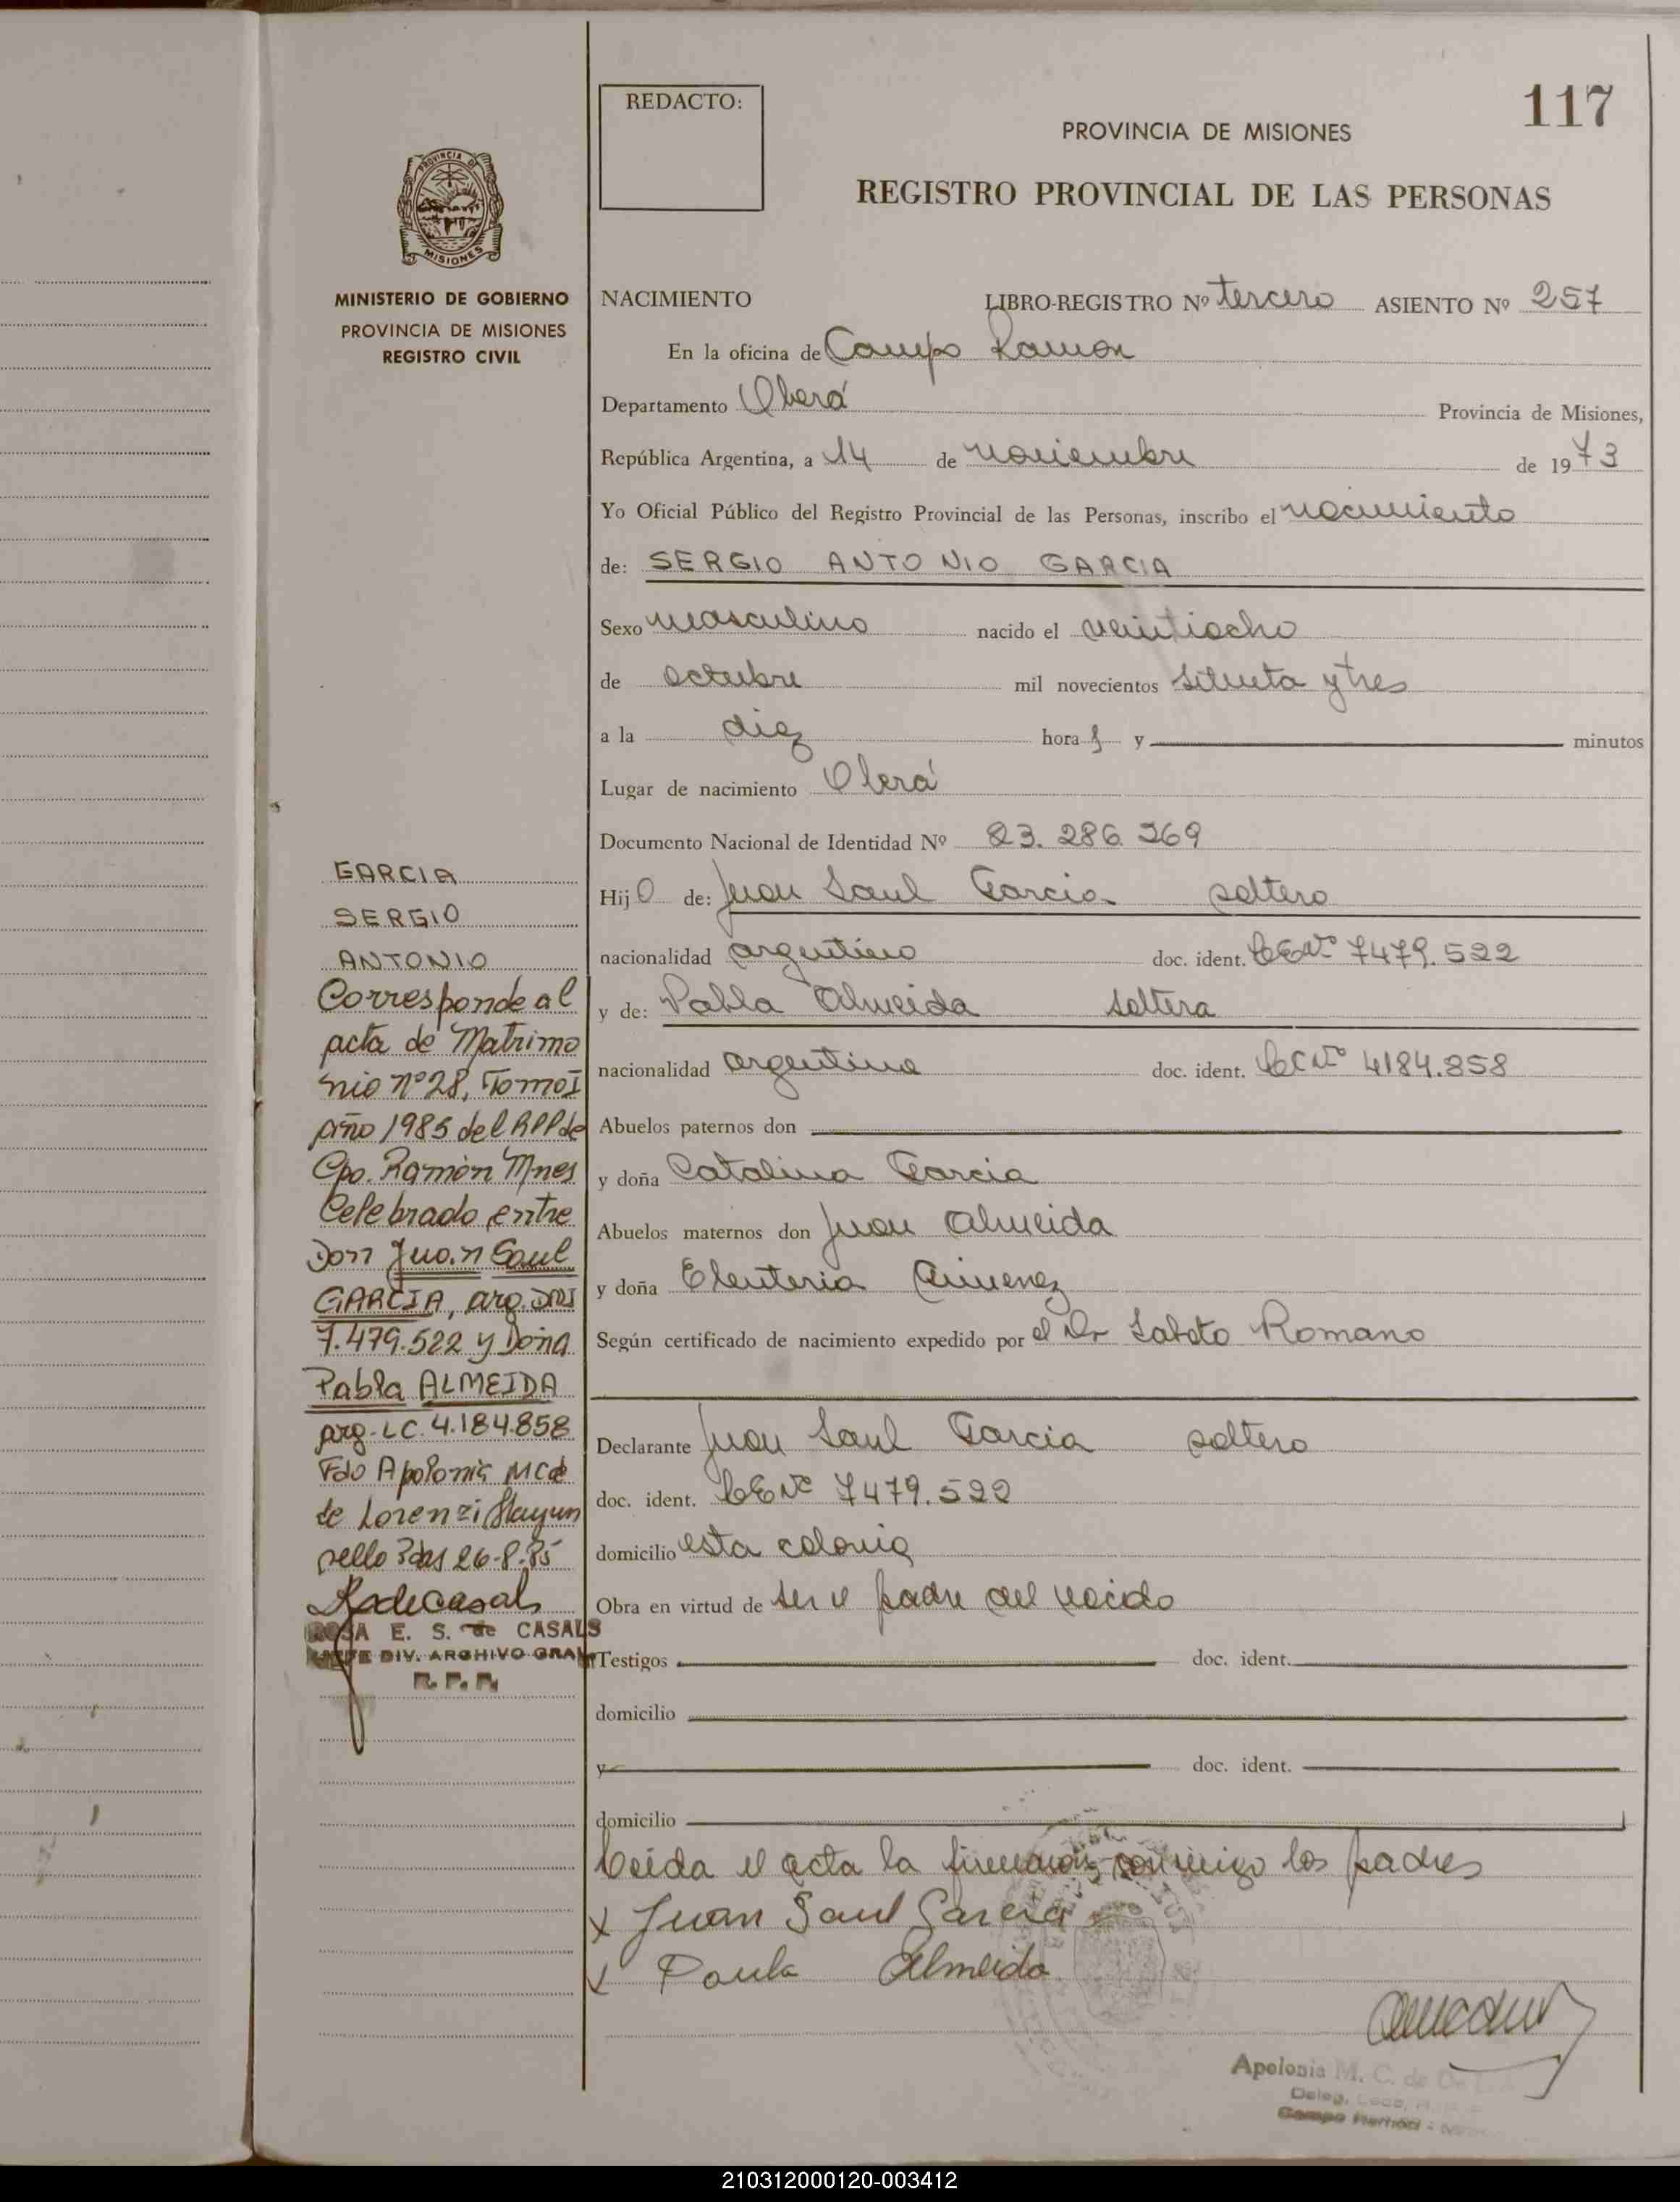 REDACTO:
117
PROVINCIA DE MISIONES
REGISTRO PROVINCIAL DE LAS PERSONAS
PROVINCIA DE
MISIONES
MINISTERIO DE GOBIERNO
PROVINCIA DE MISIONES
REGISTRO CIVIL
NACIMIENTO LIBRO-REGISTRO Nº tercero ASIENTO Nº 257
En la oficina de Campo Ramon
Departamento Oberá Provincia de Misiones,
República Argentina, a 14 de noviembre de 1973
Yo Oficial Público del Registro Provincial de las Personas, inscribo el nacimiento
de: SERGIO ANTONIO GARCIA
Sexo masculino nacido el veintiocho
de octubre mil novecientos setenta y tres
a la diez hora s y minutos
Lugar de nacimiento Oberá
Documento Nacional de Identidad Nº 23.286.269
Hijo de: Juan Saul Garcia soltero
nacionalidad argentino doc. ident. LE Nº 7479.522
y de: Pabla Almeida soltera
nacionalidad argentina doc. ident. LC Nº 4184.858
Abuelos paternos don
y doña Catalina Garcia
Abuelos maternos don Juan Almeida
y doña Eleuteria Gimenez
Según certificado de nacimiento expedido por el Dr Romano
Declarante Juan Saul Garcia soltero
doc. ident. LE Nº 7479.522
domicilio esta colonia
Obra en virtud de ser el padre del nacido
Testigos doc. ident.
domicilio
y doc. ident.
domicilio
Leida el acta la firman conmigo los padres
x Juan Saul Garcia
x Paula Almeida
Apolonia M. C. de
Deleg.
Campo Ramón
GARCIA
SERGIO
ANTONIO
Corresponde al
acta de Matrimo
nio nº 28, Tomo I
año 1985 del RPP de
Cpo. Ramón Mnes
Celebrado entre
Don Juan Saul
GARCIA, arg. DNI
7.479.522 y Doña
Pabla ALMEIDA
arg. LC. 4.184.858
Fdo Apolonia MC de
de Lorenzi Hay un
sello Pdas 26-8-85
ROSA E. S. de CASALS
JEFE DIV. ARCHIVO GRAL
R. P. P.
210312000120-003412